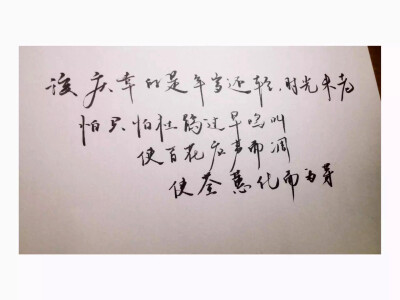 该庆幸的是年岁还轻，时光未老
怕只怕杜鹃过早鸣叫
使百花应声而凋
使荃蕙化而为茅